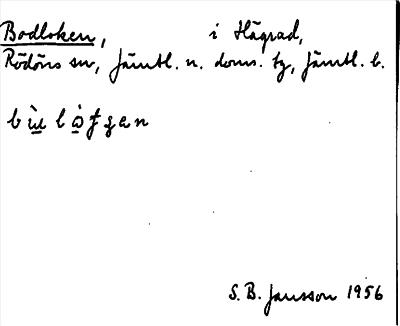 Bodloken, i Hägrad,
Rödöns sn, Jämtl. n. doms. tg, Jämtl. l.
S. B. Jansson 1956